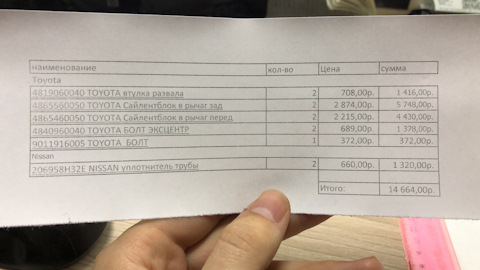 наименование кол-во Цена сумма
Toyota
4819060040 TOYOTA втулка развала 2 708,00р. 1 416,00р.
4865560050 TOYOTA Сайлентблок в рычаг зад 2 2 874,00р. 5 748,00р.
4865460050 TOYOTA Сайлентблок в рычаг перед 2 2 215,00р. 4 430,00р.
4840960040 TOYOTA БОЛТ ЭКСЦЕНТР 2 689,00р. 1 378,00р.
9011916005 TOYOTA БОЛТ 1 372,00р. 372,00р.
Nissan
206958H32E NISSAN уплотнитель трубы 2 660,00р. 1 320,00р.
Итого: 14 664,00р.